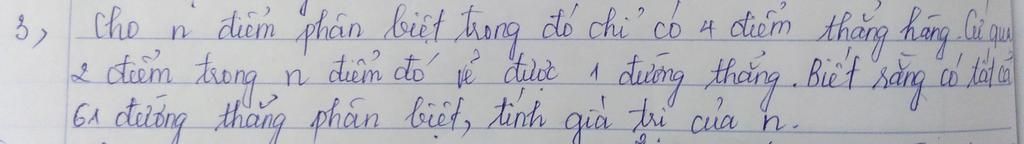 3, Cho n điểm phân biệt trong đó chỉ có 4 điểm thẳng hàng. Cứ qua
2 điểm trong n điểm đó vẽ được 1 đường thẳng. Biết rằng có tất cả
61 đường thẳng phân biệt, tính giá trị của n.